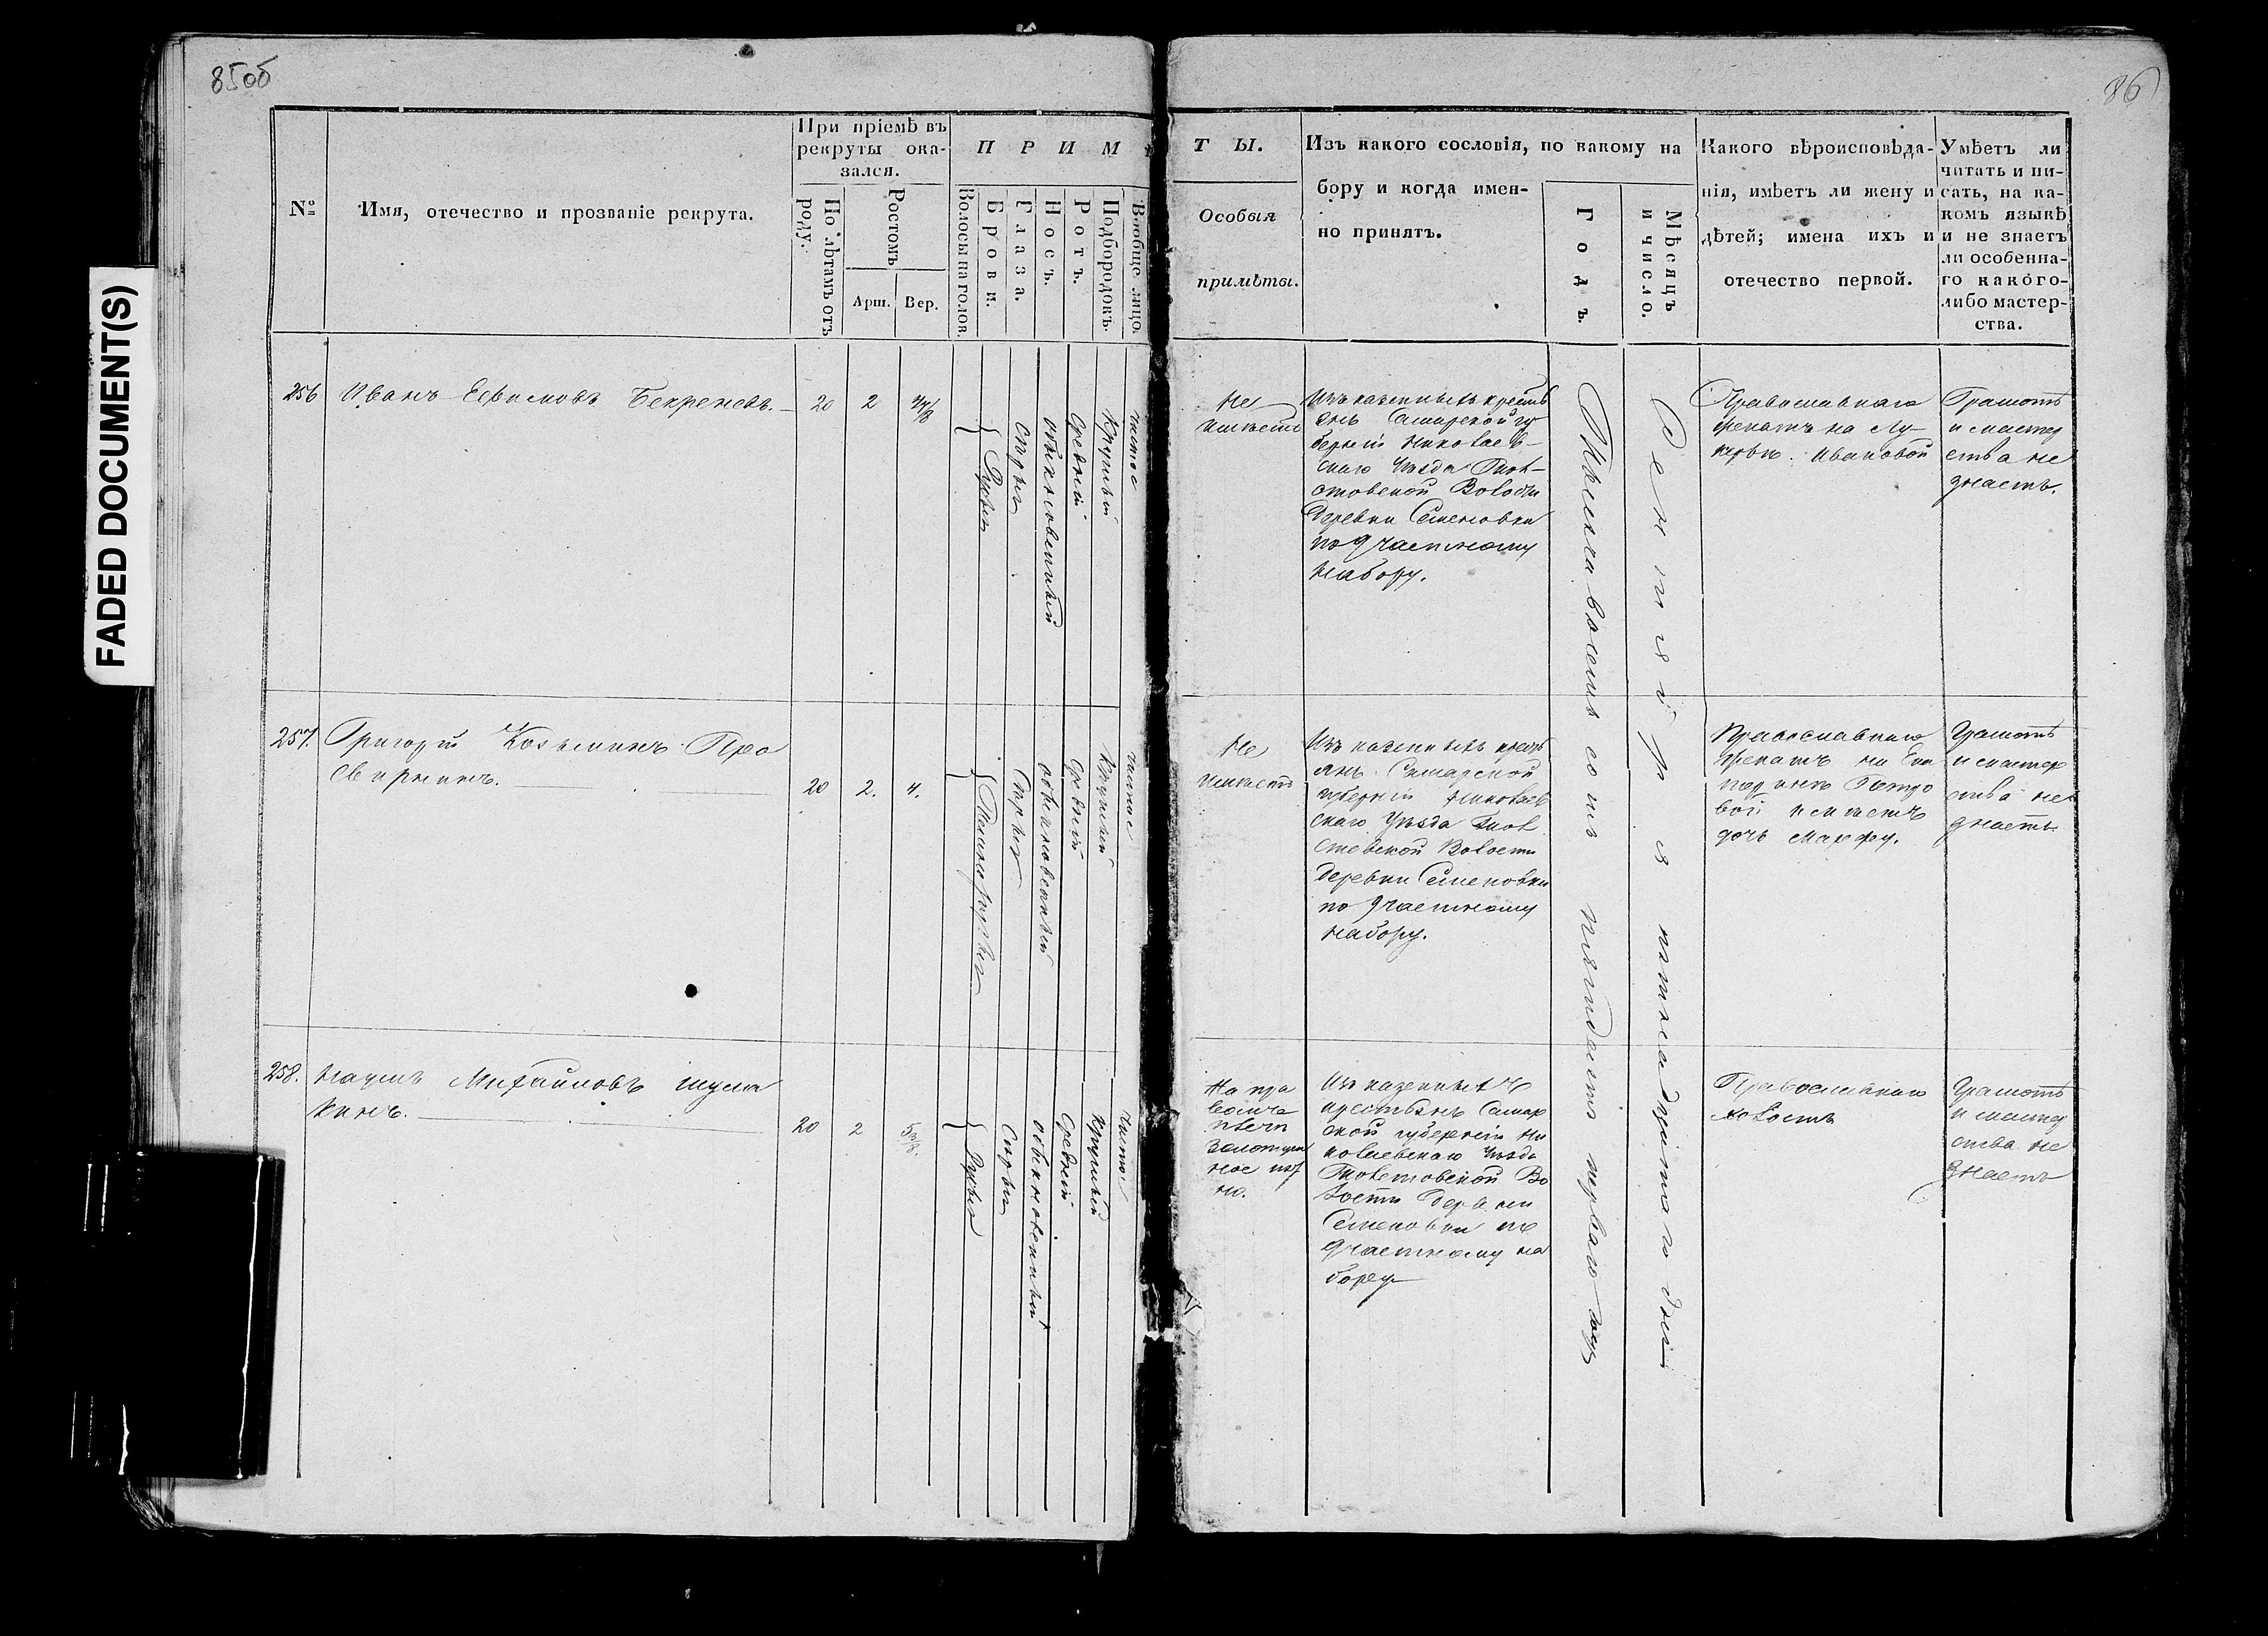 85об
86
FADED DOCUMENT(S)
№
Имя, отечество и прозваніе рекрута.
При пріемѣ въ
рекруты ока-
зался.
По лѣтамъ отъ
роду.
Ростомъ
Арш.
Вер.
П Р И М Ѣ
Волосы на голов.
Брови.
Глаза.
Носъ.
Ротъ.
Подбородокъ.
Вообще лицо.
Т Ы.
Особыя
примѣты.
Изъ какого сословія, по какому на
бору и когда имен-
но принятъ.
Годъ.
Мѣсяцъ
и число.
Какого вѣроисповѣда-
нія, имѣетъ ли жену и
дѣтей; имена ихъ и
отечество первой.
Умѣетъ ли
читать и пи-
сать, на ка-
комъ языкѣ
и не знаетъ
ли особенна-
го какого-
либо мастер-
ства.
256
Иванъ Ефимовъ Бекреневъ.
20
2
Русые
сѣрые
обыкновенный
средній
круглый
чистое
Не
имѣетъ
Изъ казенныхъ кресть
янъ Самарской гу
берніи Николаев-
скаго Уѣзда
Волости
Деревни Семеновки
по частному
набору.
Тысяча восемь сотъ пятдесятъ перваго году
Сентября пятнадцатаго дня
Православнаго
женатъ на Лу-
керьи Ивановой
Грамотѣ
и мастер
ства не
знаетъ.
257.
Григорій Козьминъ Про
свирнинъ.
20
2.
4.
Темнорусые
обыкновенный
средній
круглый
чистое
Не
имѣетъ
Изъ казенныхъ кресть
янъ Самарской
губерніи Николаев
скаго Уѣзда
Волости
Деревни Семеновки
по частному
набору.
Православнаго
женатъ на Ека
теринѣ Петро
вой имѣетъ
дочь Марфу.
Грамотѣ
и мастер
ства не
знаетъ.
258.
Наумъ Михайловъ Шума
кинъ.
20
2
Русые
сѣрые
обыкновенный
средній
круглый
чистое
На пра
вомъ
плечи
золотуш
ное пят
но.
Изъ казенныхъ
крестьянъ Самар
ской губерніи Ни
колаевскаго Уѣзда
Во
лости Деревни
Семеновки по
частному на
бору
Православнаго
холостъ
Грамотѣ
и мастер
ства не
знаетъ